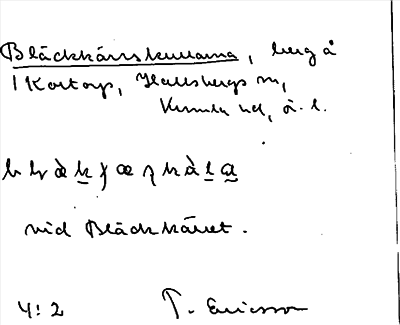 Bläckkärrskullarna, berg å
1 Kortorp, Hallsbergs sn,
Kumla hd, Ö. l.
vid Bläckkärret.
4:2 T. Ericsson